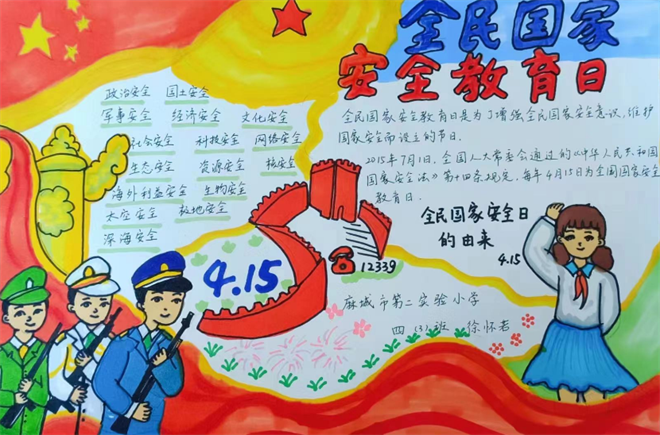 全民国家
安全教育日
政治安全 国土安全
军事安全 经济安全 文化安全
社会安全 科技安全 网络安全
生态安全 资源安全 核安全
海外利益安全 生物安全
太空安全 极地安全
深海安全
全民国家安全教育日是为了增强全民国家安全意识,维护
国家安全而设立的节日。
2015年7月1日,全国人大常委会通过的《中华人民共和国
国家安全法》第十四条规定,每年4月15日为全国国家安全
教育日。
全民国家安全日
的由来
4.15
4.15
12339
麻城市第二实验小学
四(3)班 徐怀